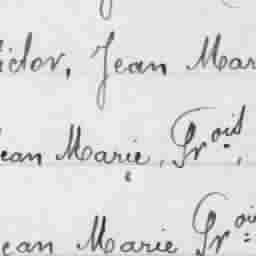 ictor, Jean Mar
ean Marie, Frois,
ean Marie Froi